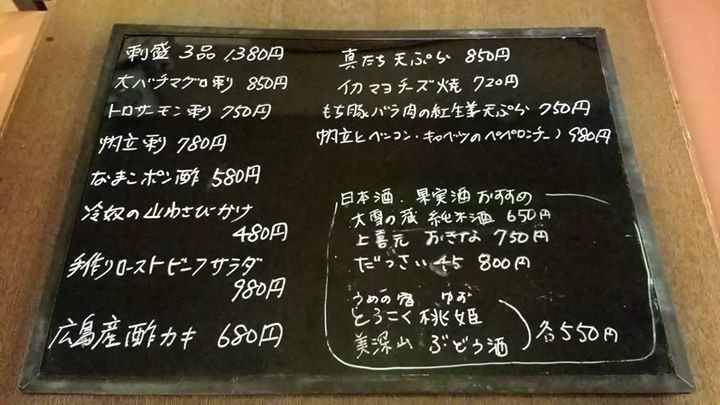 刺盛 3品 1,380円
大バチマグロ刺 850円
トロサーモン刺 750円
帆立刺 780円
なまこポン酢 580円
冷奴の山わさびかけ
480円
手作りローストビーフサラダ
980円
広島産酢カキ 680円
真だち天ぷら 850円
イカマヨチーズ焼 720円
もち豚バラ肉の紅生姜天ぷら 750円
帆立とベーコン・キャベツのペペロンチーノ 980円
日本酒、果実酒おすすめ
大雪の蔵 純米酒 650円
上喜元 おきな 750円
だっさい 45 800円
うめの宿 ゆず
とろこく桃姫
美深山 ぶどう酒
各550円